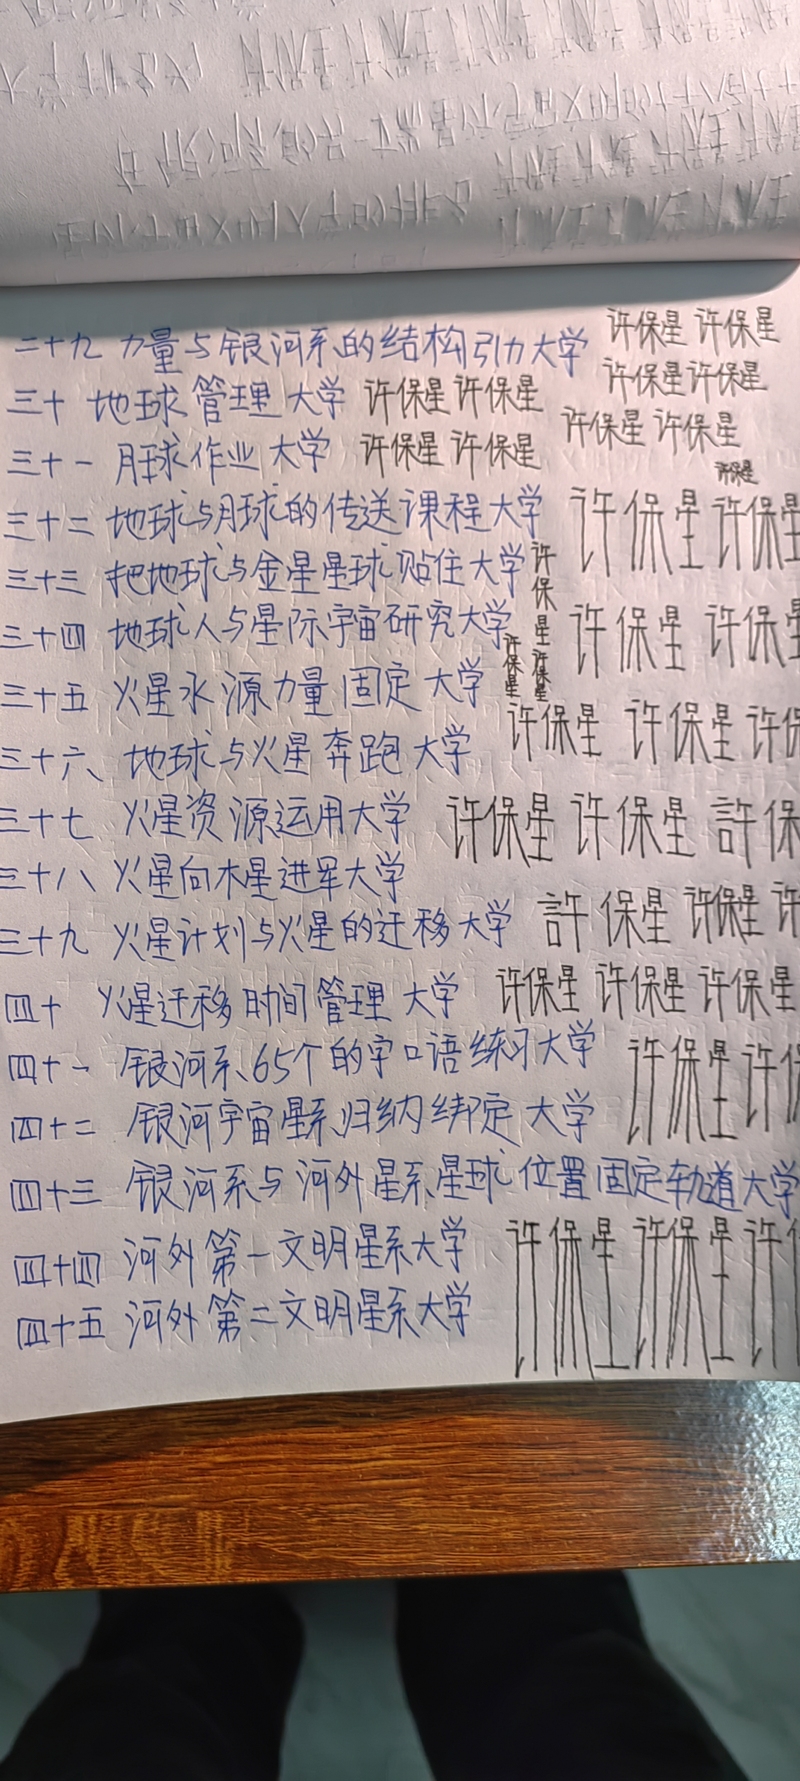 二十九 力量与银河系的结构引力大学 许保星 许保星
许保星 许保星
三十 地球管理大学 许保星 许保星
许保星 许保星
三十一 月球作业大学 许保星 许保星
许保星
三十二 地球与月球的传送课程大学 许保星 许保星
三十三 把地球与金星星球贴住大学 许保星
三十四 地球人与星际宇宙研究大学 许保星 许保星
许保星 许保星
三十五 火星水源力量固定大学
许保星 许保星 许保
三十六、地球与火星奔跑大学
三十七 火星资源运用大学 许保星 许保星 許保
三十八 火星向木星进军大学
三十九 火星计划与火星的迁移大学 許保星 许保星 许
四十 火星迁移时间管理大学 许保星 许保星 许保星
四十一 银河系、65个的字口语练习大学 许保星 许保
四十二 银河宇宙星系归纳绑定大学
四十三 银河系与河外星系星球位置固定轨道大学
四十四 河外第一文明星系大学 许保星 许保星 许
四十五 河外第二文明星系大学